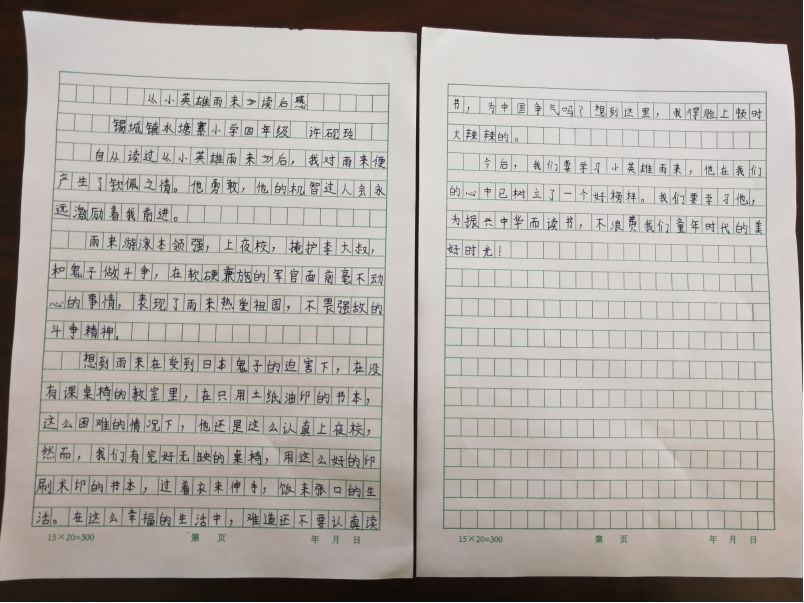 《小英雄雨来》读后感
锡城镇水塘寨小学四年级 许砚玲
自从读过《小英雄雨来》后，我对雨来便
产生了钦佩之情。他勇敢，他的机智过人会永
远激励着我前进。
雨来游泳本领强，上夜校，掩护李大叔，
和鬼子做斗争，在软硬兼施的军官面前毫不动
心的事情，表现了雨来热爱祖国，不畏强敌的
斗争精神。
想到雨来在受到日本鬼子的迫害下，在没
有课桌椅的教室里，在只用土纸油印的书本，
这么困难的情况下，他还是这么认真上夜校，
然而，我们有完好无缺的桌椅，用这么好的印
刷术印的书本，过着衣来伸手，饭来张口的生
活。在这么幸福的生活中，难道还不要认真读
15×20=300 第 页 年 月 日
书，为中国争气吗？想到这里，我得脸上顿时
火辣辣的。
今后，我们要学习小英雄雨来，他在我们
的心中已树立了一个好榜样。我们要学习他，
为振兴中华而读书，不浪费我们童年时代的美
好时光！
15×20=300 第 页 年 月 日